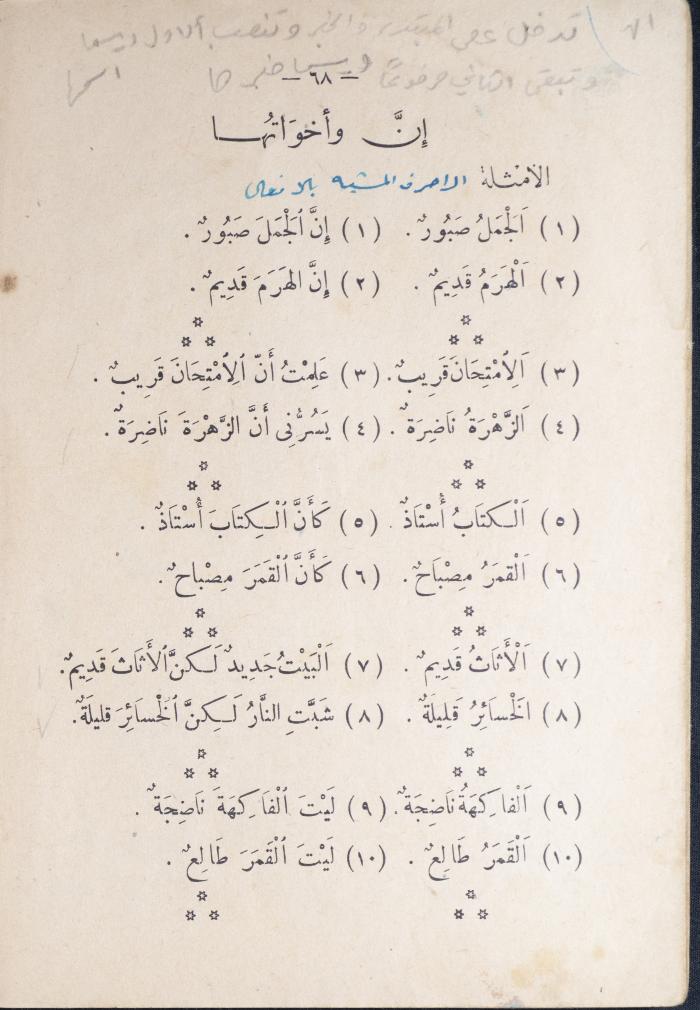 تدخل على المبتدء والخبر وتنصب الاول ويسما اسمها
وتبقى الثاني مرفوعًا ويسما خبرها
— ٦٨ —
إِنَّ وأخوَاتُهَا
الأمْثلة الاحرف المشبه بالافعال
(١) اَلْجَمَلُ صَبُورٌ . (١) إِنَّ ٱلْجَمَلَ صَبُورٌ .
(٢) اَلْهَرَمُ قَدِيمٌ . (٢) إِنَّ الهَرَمَ قَدِيمٌ .
(٣) اَلِامْتِحَانُ قَرِيبٌ . (٣) عَلِمْتُ أَنَّ ٱلِامْتِحَانَ قَرِيبٌ .
(٤) اَلزَّهْرَةُ نَاضِرَةٌ . (٤) يَسُرُّنِى أَنَّ الزَّهْرَةَ نَاضِرَةٌ .
(٥) اَلْكتَابُ أُسْتَاذٌ . (٥) كَأَنَّ ٱلْكِتَابَ أُسْتَاذٌ .
(٦) اَلْقمَرُ مِصْبَاحٌ . (٦) كَأَنَّ ٱلْقمَرَ مِصْبَاحٌ .
(٧) اَلْأَثَاثُ قَدِيمٌ . (٧) اَلْبَيْتُ جَدِيدٌ لَكنَّ ٱلأَثَاثَ قَدِيمٌ .
(٨) اَلْخسَائِرُ قَلِيلَةٌ . (٨) شبَّتِ النَّارُ لَكِنَّ ٱلْخَسَائِرَ قليلَةٌ .
(٩) اَلْفاكِهَةُ نَاضِجَةٌ . (٩) لَيْتَ ٱلْفَاكِهَةَ نَاضِجَةٌ .
(١٠) اَلْقمَرُ طَالِعٌ . (١٠) لَيْتَ ٱلْقَمَرَ طَالِعٌ .